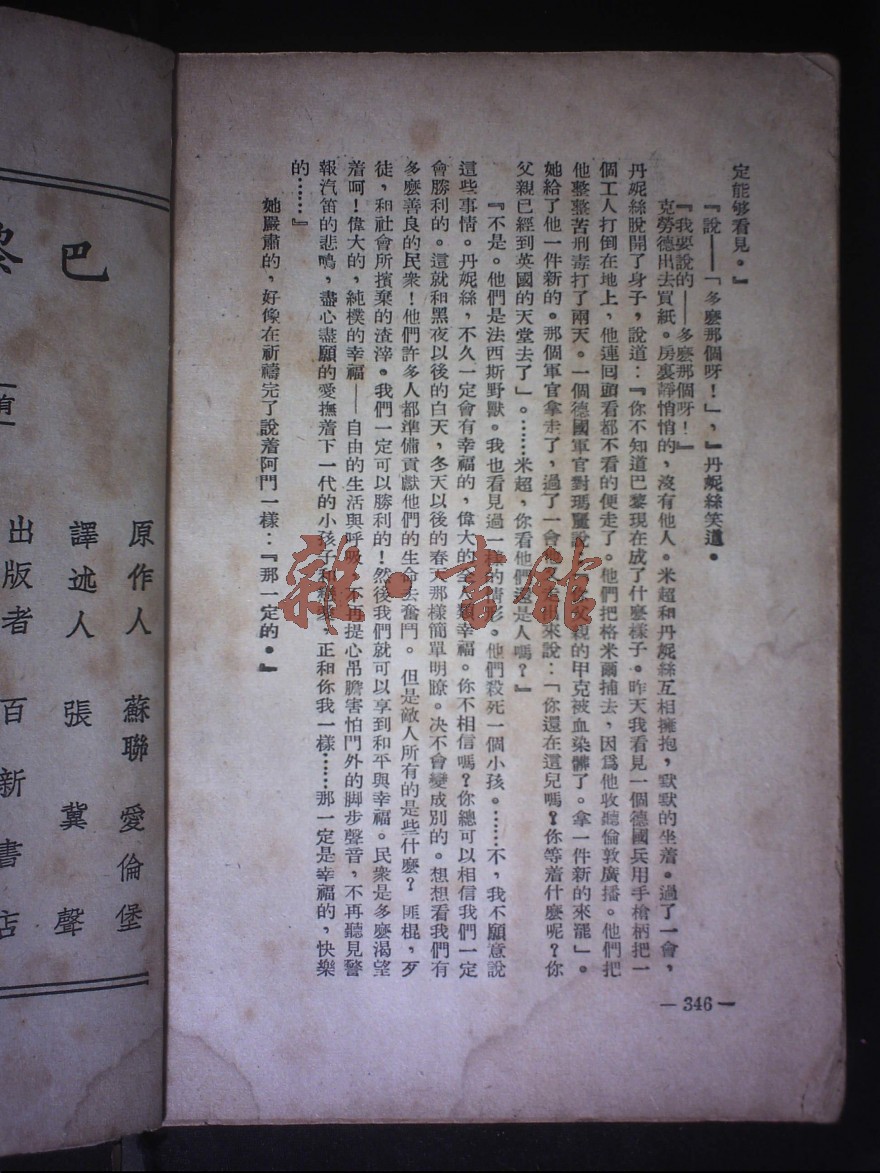 定能够看見。』
『說——「多麼那個呀！」，』丹妮絲笑道。
『我要說的——多麼那個呀！』
克勞德出去買紙。房裏靜悄悄的，沒有他人。米超和丹妮絲互相擁抱，默默的坐着。過了一會，
丹妮絲脫開了身子，說道：『你不知道巴黎現在成了什麼樣子。昨天我看見一個德國兵用手槍柄把一
個工人打倒在地上，他連回頭看都不看的便走了。他們把格米爾捕去，因爲他收聽倫敦廣播。他們把
他整整苦刑毒打了兩天。一個德國軍官對瑪麗說：「你父親的甲克被血染髒了。拿一件新的來罷」。
她給了他一件新的。那個軍官拿走了，過了一會他又 出來說：「你還在這兒嗎？你等着什麼呢？你
父親已經到英國的天堂去了」。……米超，你看他們還是人嗎？』
『不是。他們是法西斯野獸。我也看見過一樣的情形。他們殺死一個小孩。……不，我不願意說
這些事情。丹妮絲，不久一定會有幸福的，偉大的全人類幸福。你不相信嗎？你總可以相信我們一定
會勝利的。這就和黑夜以後的白天，冬天以後的春天那樣簡單明瞭。決不會變成別的。想想看我們有
多麼善良的民衆！他們許多人都準備貢獻他們的生命去奮鬥。但是敵人所有的是些什麼？匪棍，歹
徒，和社會所擯棄的渣滓。我們一定可以勝利的！然後我們就可以享到和平與幸福。民衆是多麼渴望
着呵！偉大的，純樸的幸福——自由的生活與呼吸，不再提心吊膽害怕門外的脚步聲音，不再聽見警
報汽笛的悲鳴，盡心盡願的愛撫着下一代的小孩子和 ，正和你我一樣……那一定是幸福的，快樂
的……』
她嚴肅的，好像在祈禱完了說着阿門一樣：『那一定的。』
— 346 —
巴黎
有
原作人 蘇聯 愛倫堡
譯述人 張冀聲
出版者 百新書店
雜·書館